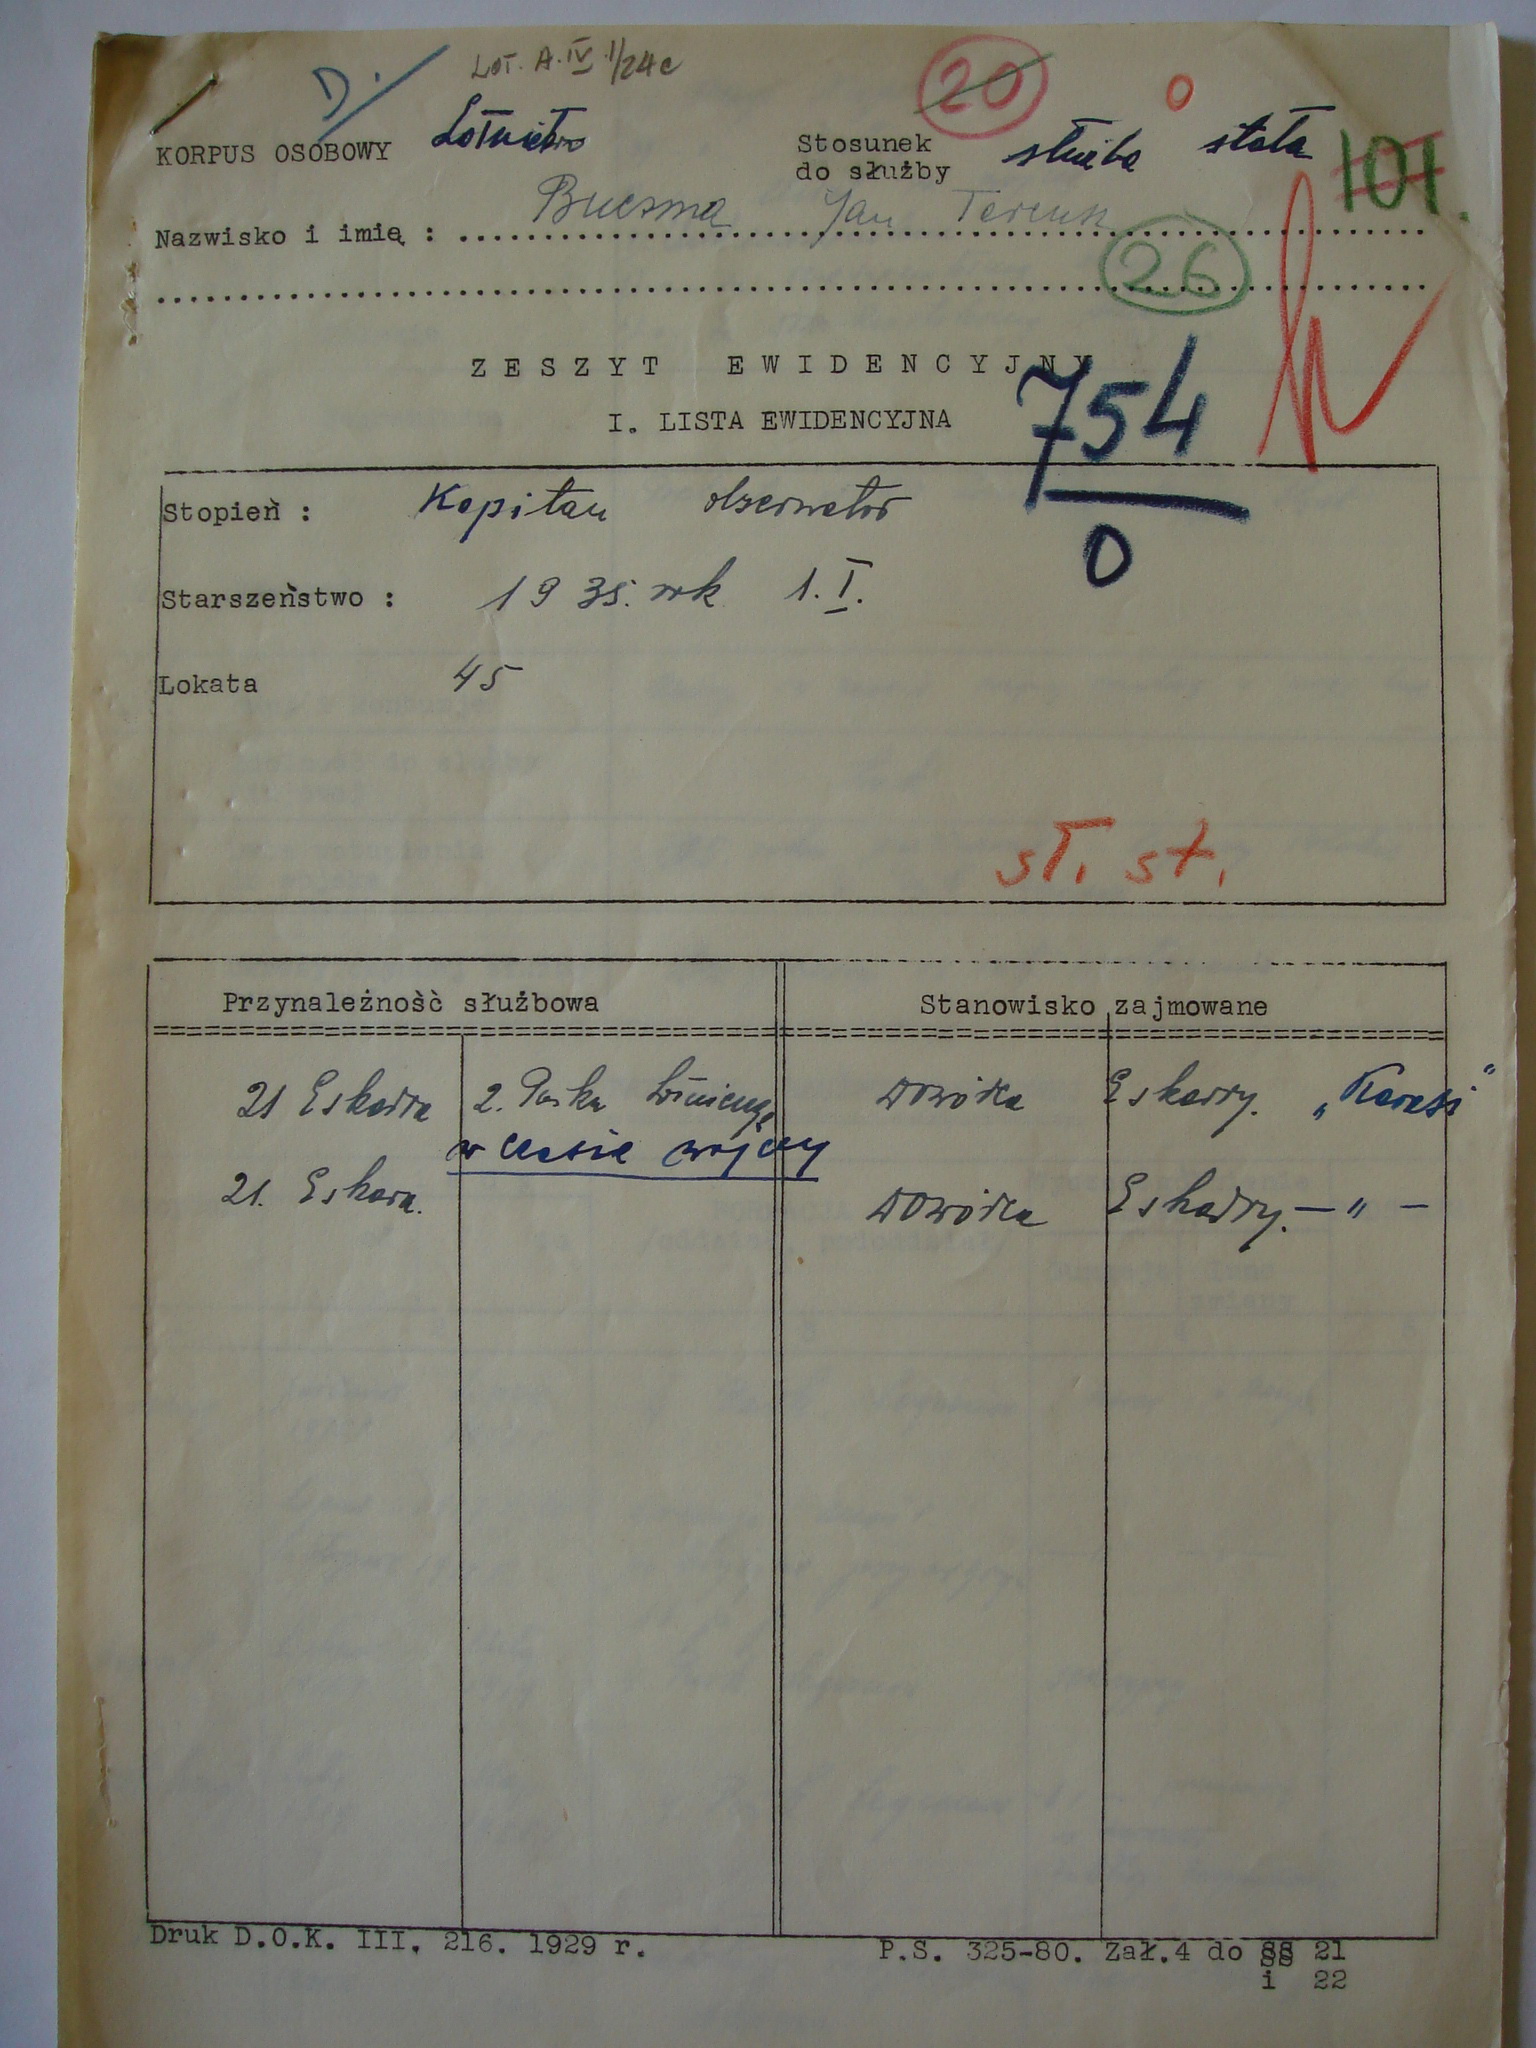 D.
Lot. A. IV 1/24c
20
0
KORPUS OSOBOWY Lotnictwo
Stosunek do służby służba stała
101.
Nazwisko i imię : Buczma Jan
26
ZESZYT EWIDENCYJNY
I. LISTA EWIDENCYJNA
754
0
Stopień : Kapitan obserwator
Starszeństwo : 1935. rok 1.I.
Lokata 45
sł. st.
Przynależność służbowa Stanowisko zajmowane
21 Eskadra 2. Pułku Lotniczego Dowódca Eskadry. „Karaś"
w czasie wojny
21. Eskadra. Dowódca Eskadry. — " —
Druk D.O.K. III. 216. 1929 r. P.S. 325-80. Zał.4 do §§ 21
i 22